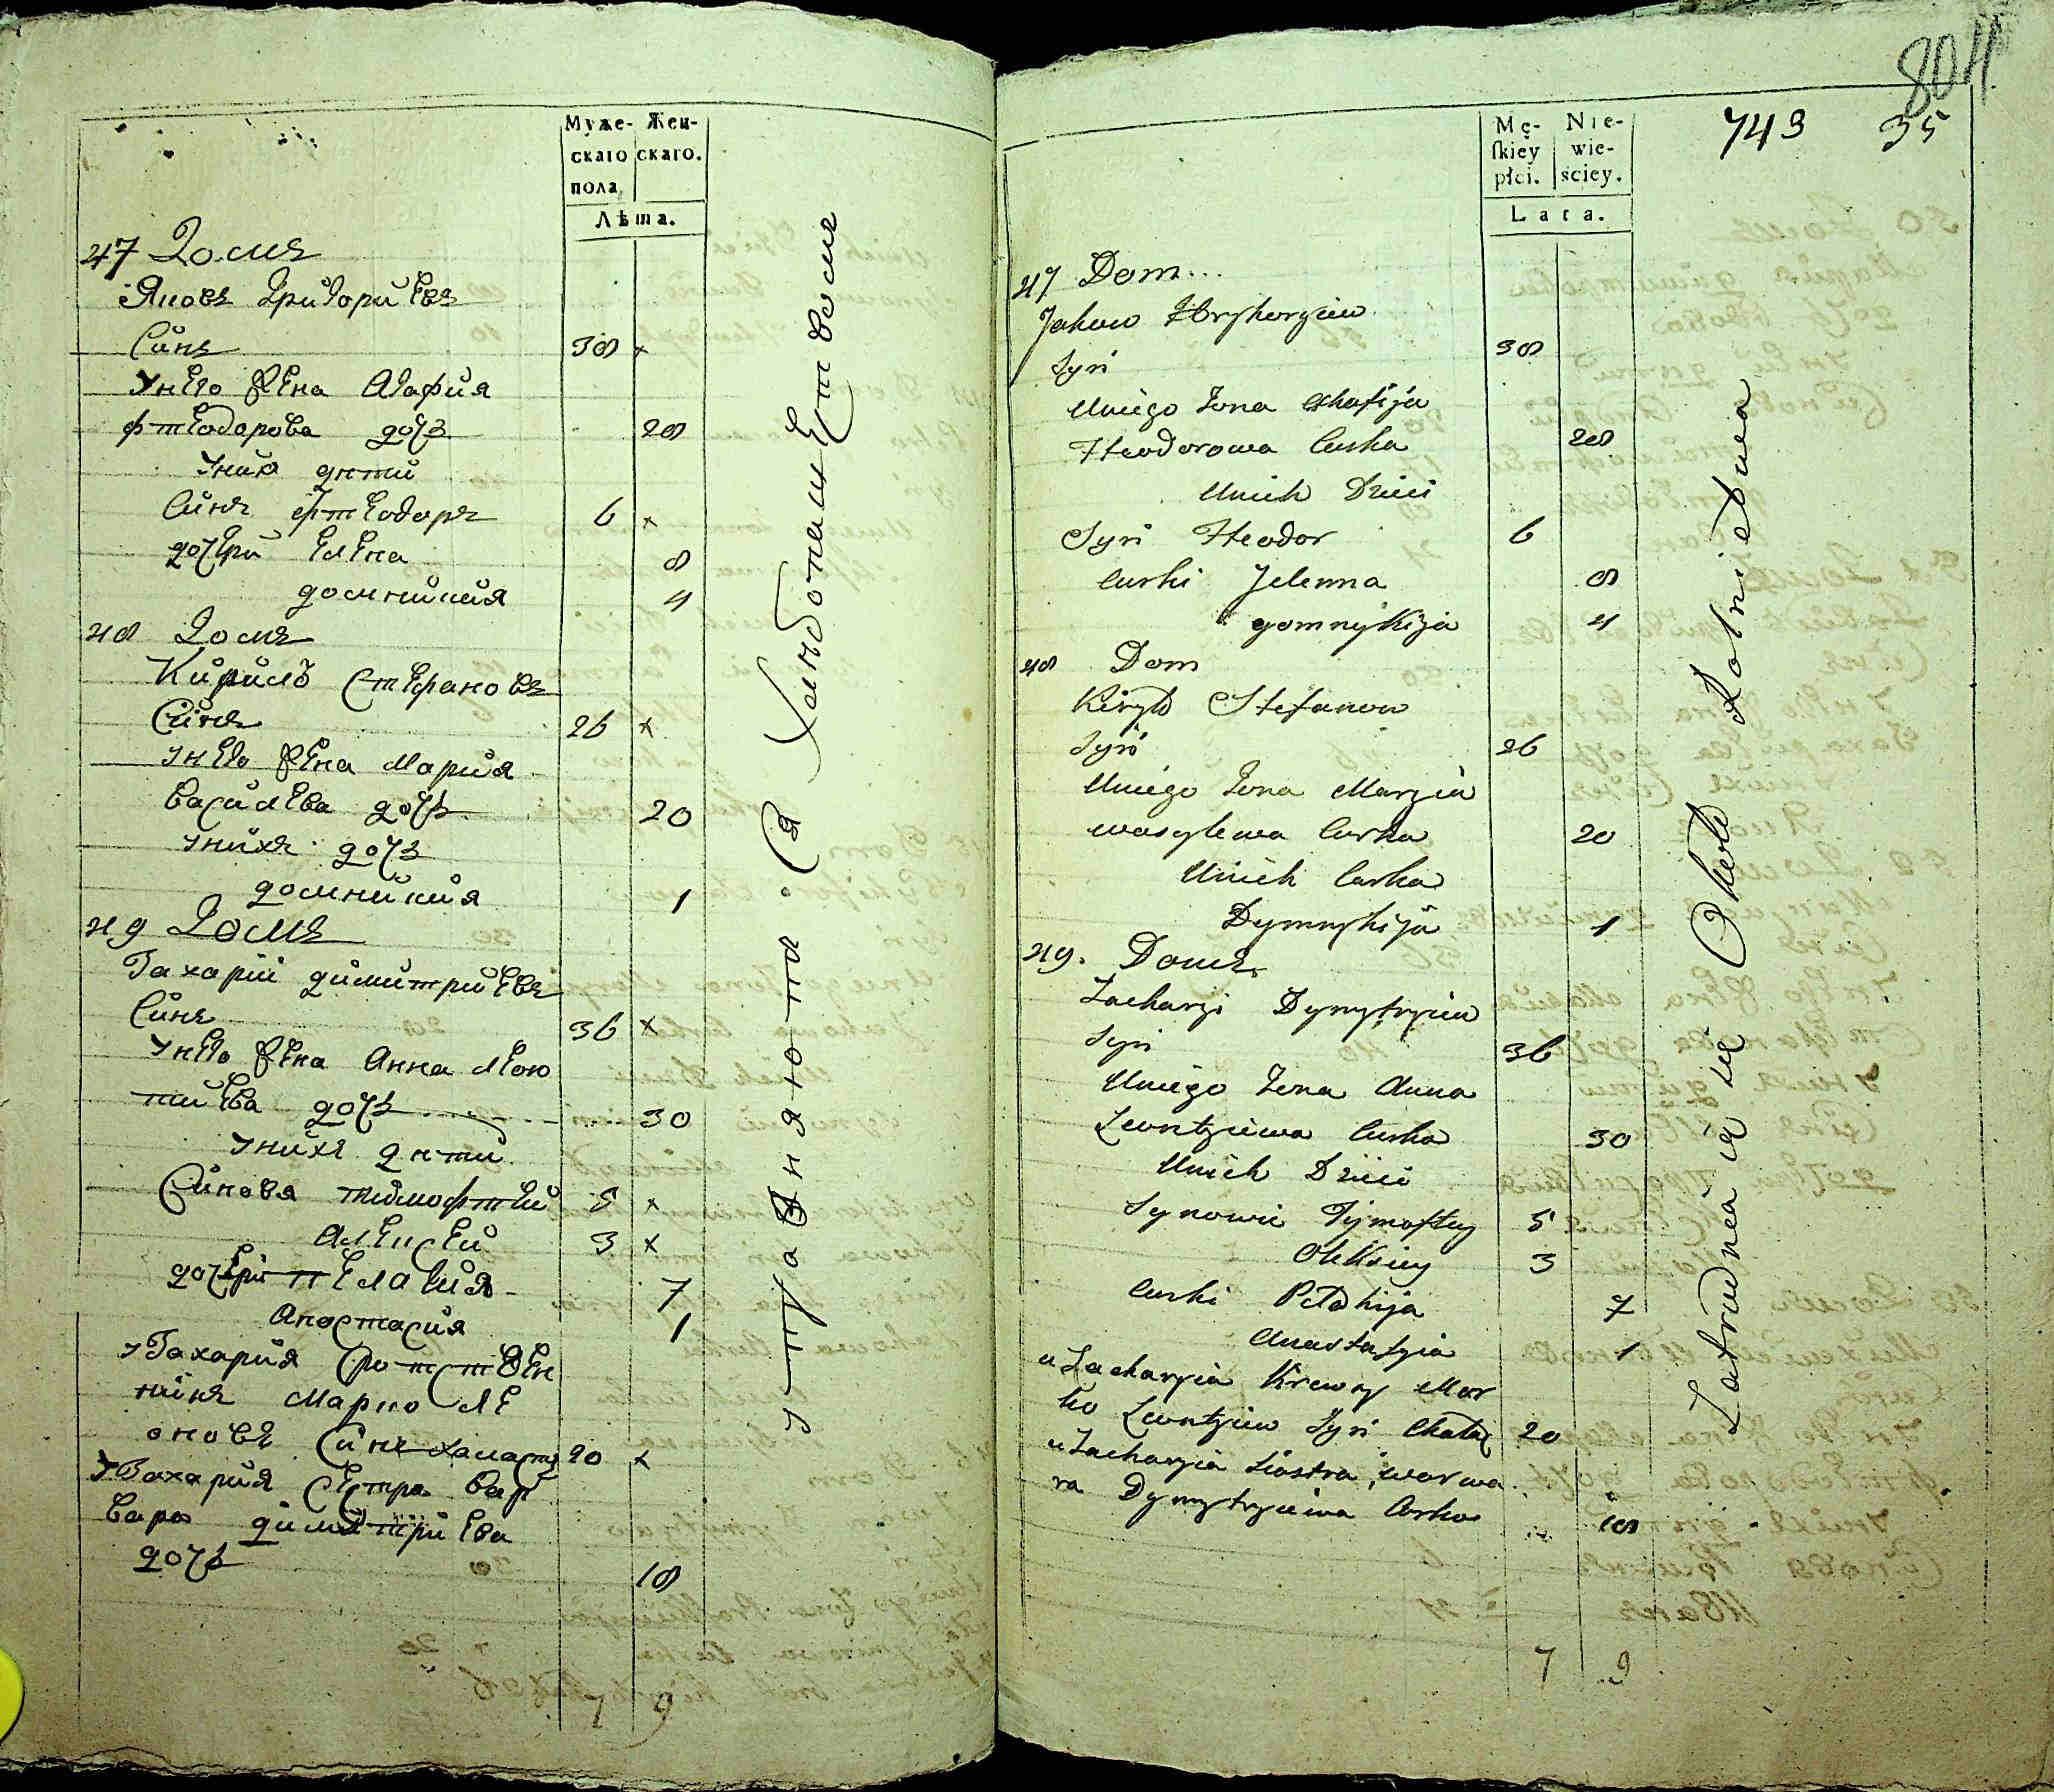 Муже-
скаго
пола
Жен-
скаго.
Лѣта.
47 Домъ
Яковъ Григориевъ
Синъ 38 x
Унего жена Агафия
Фтеодорова дочь 28
Унихъ дѣти
Синъ Фтеодоръ 6 x
дочери Елена 8
домникия 4
48 Домъ
Кирило Стефановъ
Синъ 26 x
Унего жена Мария
Василева дочь 20
Унихъ дочь
домникия 1
49 Домъ
Захарий димитриевъ
Синъ 36 x
Унего жена Анна Леон
тиева дочь 30
Унихъ дѣти
Синовя тимофтей 5 x
Алексей 3 x
дочери пелагия 7
Анастасия 1
УЗахария
Марко Ле
Синъ 20 x
УЗахария Сестра Вар
Вара димитриева
дочь 18
7 9
804
743 35
Mę-
skiey
płci.
Nie-
wie-
ściey.
Lata.
47 Dom
Jakow Hryhoryiew
Syn 38
Uniego Zona Ahafija
Fteodorowa Curka 28
Unich Dzieci
Syn Fteodor 6
Curki Jelenna 8
Domnykija 4
48 Dom
Kiryło Stefanow
Syn 26
Uniego Zona Maryia
Wasylewa Curka 20
Unich Curka
Dymnykija 1
49. Domъ
Zacharyi Dymytryiew
Syn 36
Uniego Zona Anna
Leontyiewa Curka 30
Unich Dzieci
Synowie Tymoftey 5
Oleksiey 3
Curki Pelahija 7
Anastasyia 1
u Zacharyia Krewny Mar
ko Leontyiew Syn 20
u Zacharyia Siostra Warwa
ra Dymytryiewa Curka 18
7 9
Zatrudnia ia się Około Rolnictwa